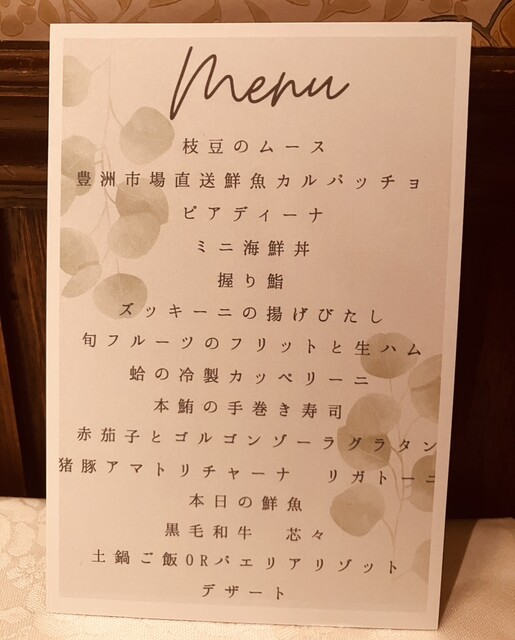 Menu
枝豆のムース
豊洲市場直送鮮魚カルパッチョ
ピアディーナ
ミニ海鮮丼
握り鮨
ズッキーニの揚げびたし
旬フルーツのフリットと生ハム
蛤の冷製カッペリーニ
本鮪の手巻き寿司
赤茄子とゴルゴンゾーラグラタン
猪豚アマトリチャーナ　リガトーニ
本日の鮮魚
黒毛和牛　芯々
土鍋ご飯ORパエリアリゾット
デザート